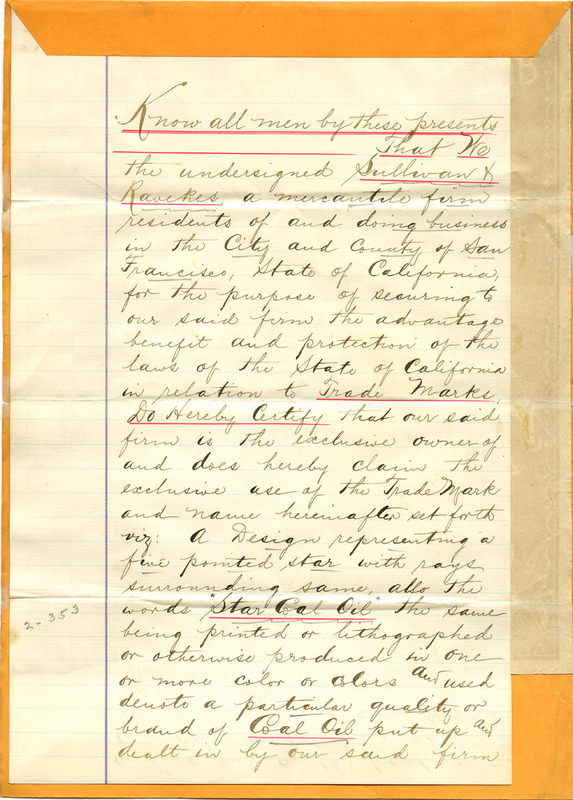 Know all men by these presents
That We
the undersigned Sullivan &
Ravekes, a mercantile firm
residents of and doing business
in the City and County of San
Francisco, State of California,
for the purpose of securing to
our said firm the advantage
benefit and protection of the
laws of the State of California
in relation to Trade Marks,
Do Hereby Certify that our said
firm is the exclusive owner of
and does hereby claim the
exclusive use of the Trade Mark
and name hereinafter set forth
viz: A Design representing a
five pointed star with rays
surrounding same, also the
words "Star Coal Oil" the same
being printed or lithographed
or otherwise produced in one
or more color or colors and used
denote a particular quality or
brand of Coal Oil put up and
dealt in by our said firm
2-353
B